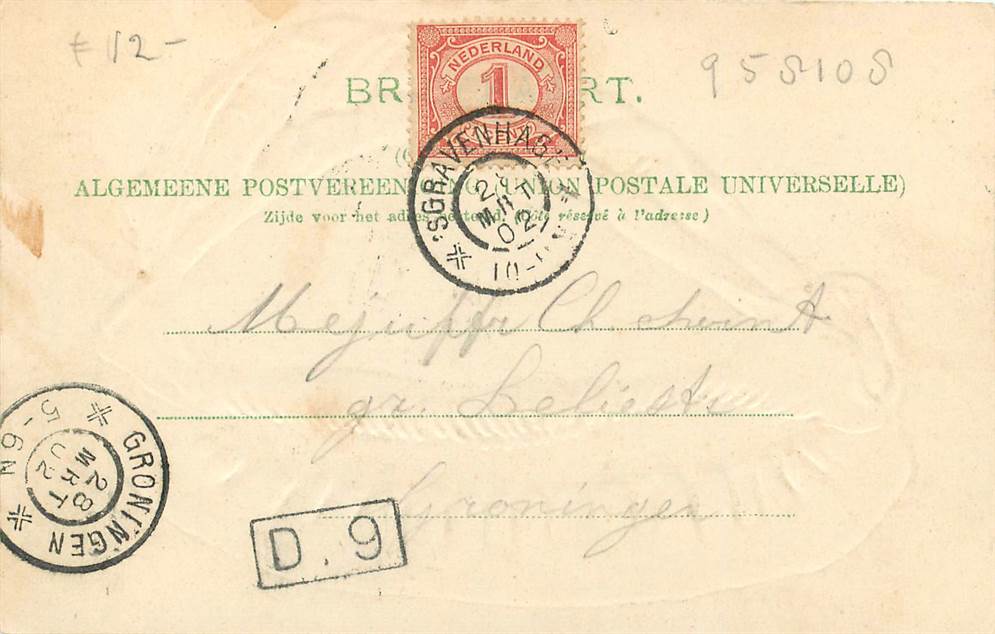 f 12-
958108
NEDERLAND
1
CENT
BR RT.
ALGEMEENE POSTVEREEN UNION POSTALE UNIVERSELLE)
Zijde voor het adres bestemd. (Côté réservé à l'adresse)
'SGRAVENHAGE
2
MRT
02
Mejuffr Ch.
gr.
Groningen
GRONINGEN
5-6N
28
MRT
02
D.9